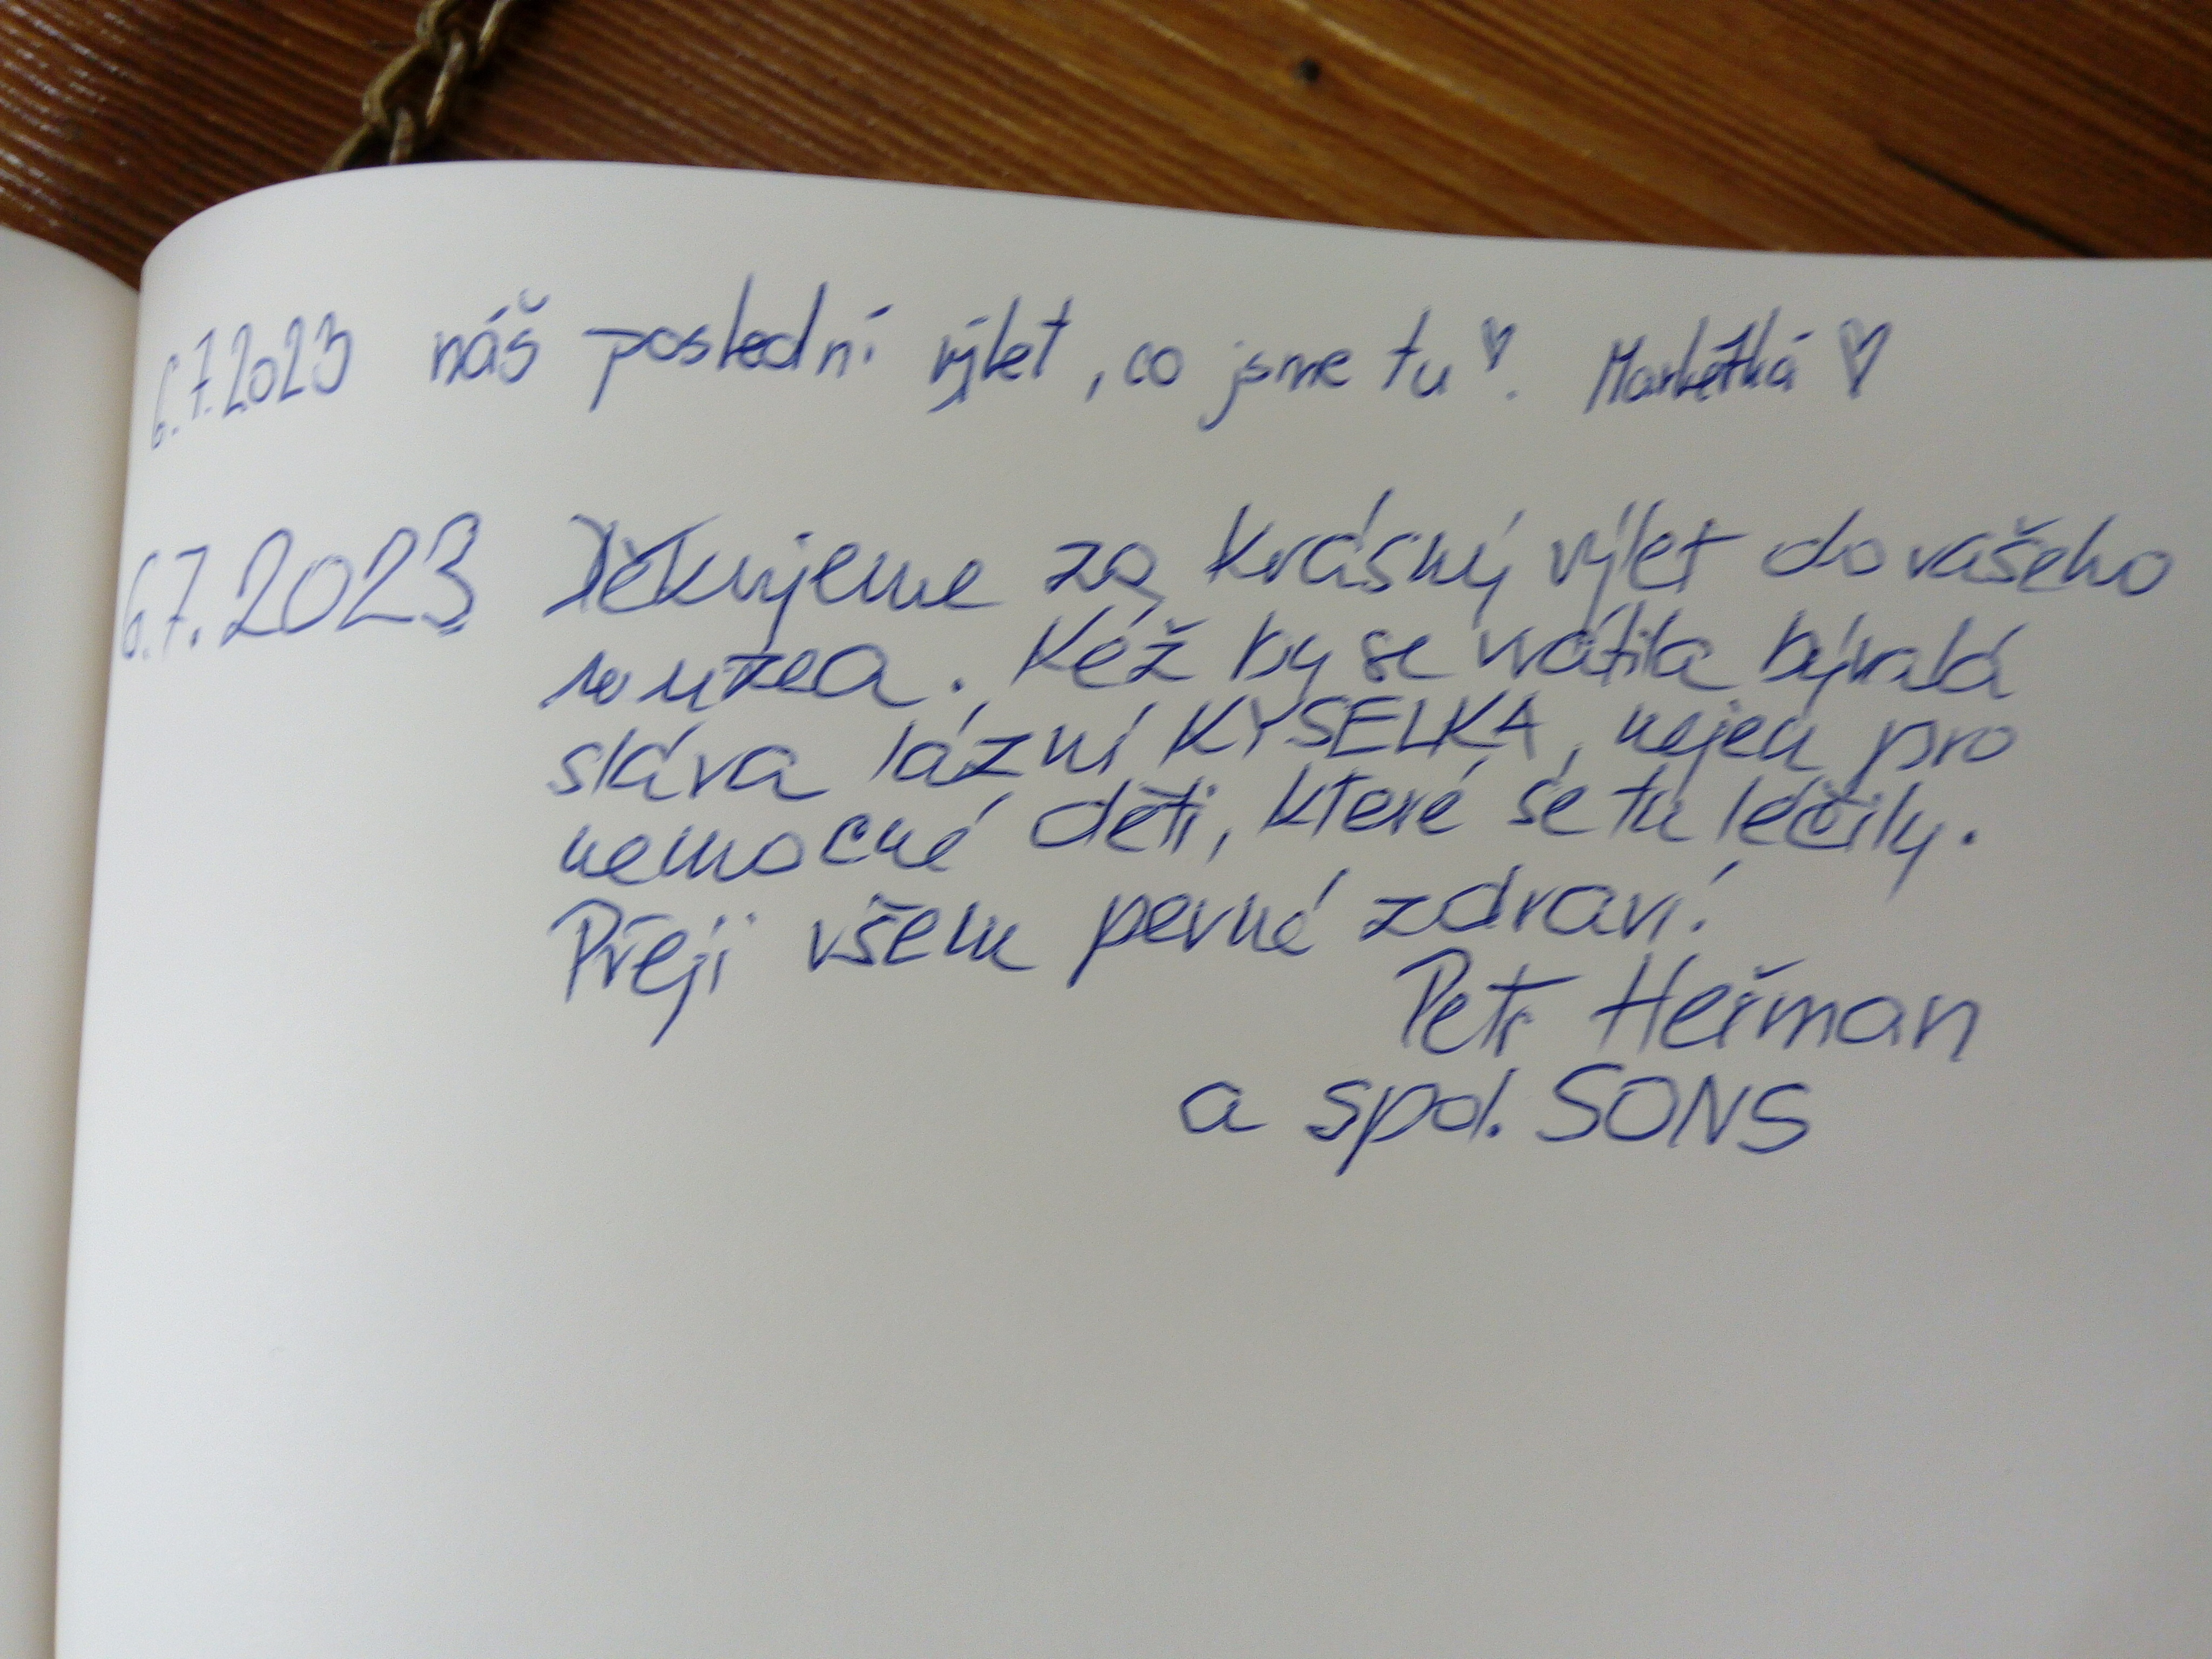 6.7.2023 náš poslední výlet, co jsme tu ♥. Markétká ♥
6.7.2023 Děkujeme za krásný výlet do vašeho
muzea. Kéž by se vrátila bývalá
sláva lázní KYSELKA, nejen pro
nemocné děti, které se tu léčily.
Přeji všem pevné zdraví!
Petr Heřman
a spol. SONS